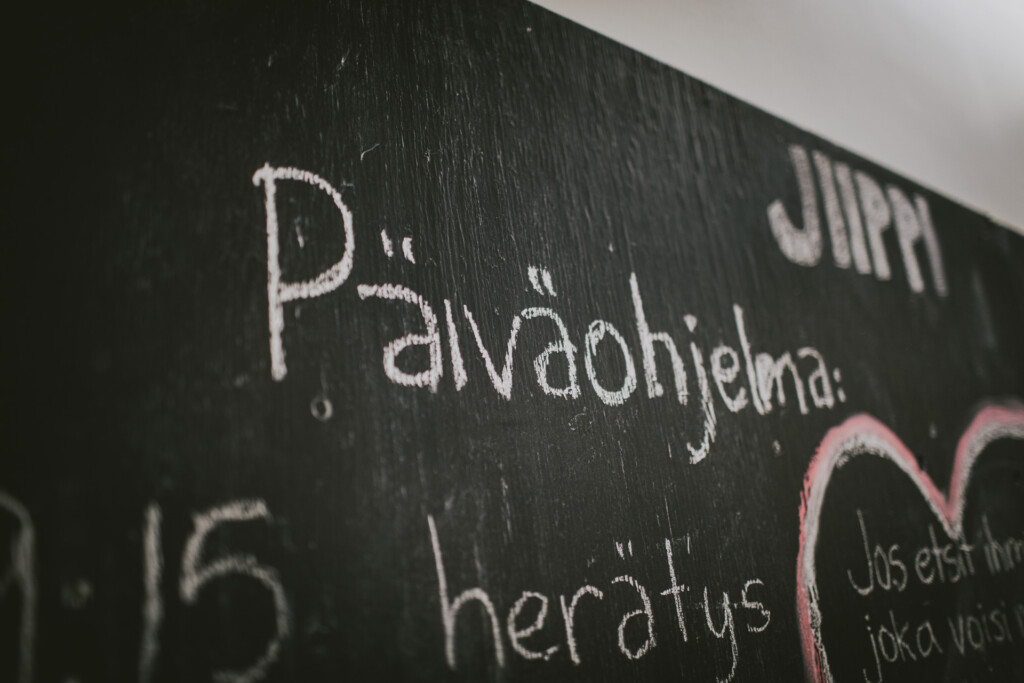 JIIPPI
Päiväohjelma:
:15 herätys
Jos etsit
joka voisi